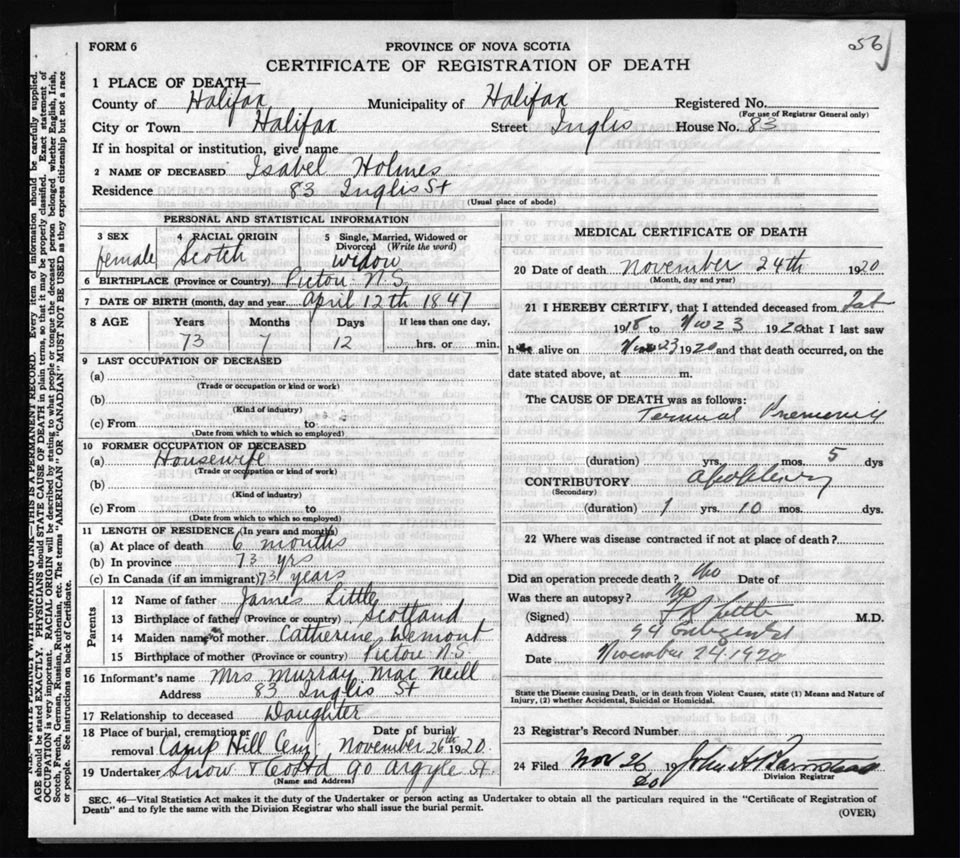 FORM 6
PROVINCE OF NOVA SCOTIA
CERTIFICATE OF REGISTRATION OF DEATH
1 PLACE OF DEATH—
County of Halifax Municipality of Halifax Registered No.
(For use of Registrar General only)
City or Town Halifax Street Inglis House No. 83
If in hospital or institution, give name
2 NAME OF DECEASED Isabel Holmes
Residence 83 Inglis St
(Usual place of abode)
PERSONAL AND STATISTICAL INFORMATION
3 SEX female
4 RACIAL ORIGIN Scotch
5 Single, Married, Widowed or Divorced (Write the word) widow
6 BIRTHPLACE (Province or Country) Pictou N.S.
7 DATE OF BIRTH (month, day and year) April 12th 1847
8 AGE Years Months Days If less than one day,
73 7 12 hrs. or min.
9 LAST OCCUPATION OF DECEASED
(a)
(Trade or occupation or kind of work)
(b)
(Kind of industry)
(c) From to
(Date from which to which so employed)
10 FORMER OCCUPATION OF DECEASED
(a) Housewife
(Trade or occupation or kind of work)
(b)
(Kind of industry)
(c) From to
(Date from which to which so employed)
11 LENGTH OF RESIDENCE (In years and months)
(a) At place of death 6 months
(b) In province 73 yrs
(c) In Canada (if an immigrant) 73 years
Parents
12 Name of father James Little
13 Birthplace of father (Province or country) Scotland
14 Maiden name of mother Catherine Demont
15 Birthplace of mother (Province or country) Pictou N.S.
16 Informant's name Mrs Murray Mac Neill
Address 83 Inglis St
17 Relationship to deceased Daughter
18 Place of burial, cremation or removal Camp Hill Cem Date of burial November 26th 1920
19 Undertaker Snow & Co Ltd 90 Argyle St.
(Name and Address)
MEDICAL CERTIFICATE OF DEATH
20 Date of death November 24th 1920
(Month, day and year)
21 I HEREBY CERTIFY, that I attended deceased from
1918 to Nov 23 1920 that I last saw
h alive on Nov 23 1920 and that death occurred, on the
date stated above, at m.
The CAUSE OF DEATH was as follows:
Terminal Pneumonia
(duration) yrs. mos. 5 dys
CONTRIBUTORY Apoplexy
(Secondary)
(duration) 1 yrs. 10 mos. dys.
22 Where was disease contracted if not at place of death?
Did an operation precede death? No Date of
Was there an autopsy? No
(Signed) M.D.
Address
Date November 24 1920
State the Disease causing Death, or in death from Violent Causes, state (1) Means and Nature of
Injury, (2) whether Accidental, Suicidal or Homicidal.
23 Registrar's Record Number
24 Filed Nov 26 19 20 John A
Division Registrar
SEC. 46—Vital Statistics Act makes it the duty of the Undertaker or person acting as Undertaker to obtain all the particulars required in the "Certificate of Registration of
Death" and to fyle the same with the Division Registrar who shall issue the burial permit.
(OVER)
WRITE PLAINLY WITH UNFADING INK—THIS IS A PERMANENT RECORD. Every item of information should be carefully supplied.
AGE should be stated EXACTLY. PHYSICIANS should STATE CAUSE OF DEATH in plain terms, so that it may be properly classified. Exact statement of
OCCUPATION is very important. RACIAL ORIGIN will be described by stating to what people or tongue the deceased person belonged whether English, Irish,
Scotch, French, German, Russian, Ruthenian, etc. The terms "AMERICAN" OR "CANADIAN" MUST NOT BE USED as they express citizenship but not a race
or people. See instructions on back of Certificate.